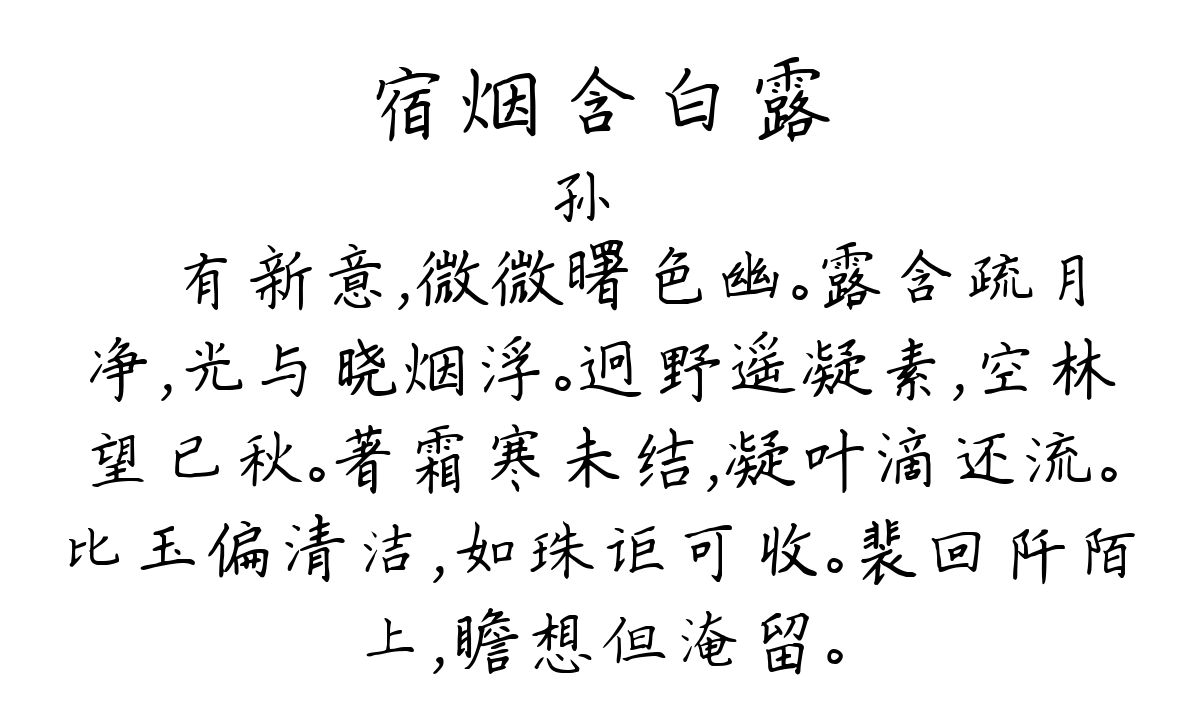 宿烟含白露
孙
有新意,微微曙色幽。露含疏月
净,光与晓烟浮。迥野遥凝素,空林
望已秋。著霜寒未结,凝叶滴还流。
比玉偏清洁,如珠讵可收。裴回阡陌
上,瞻想但淹留。